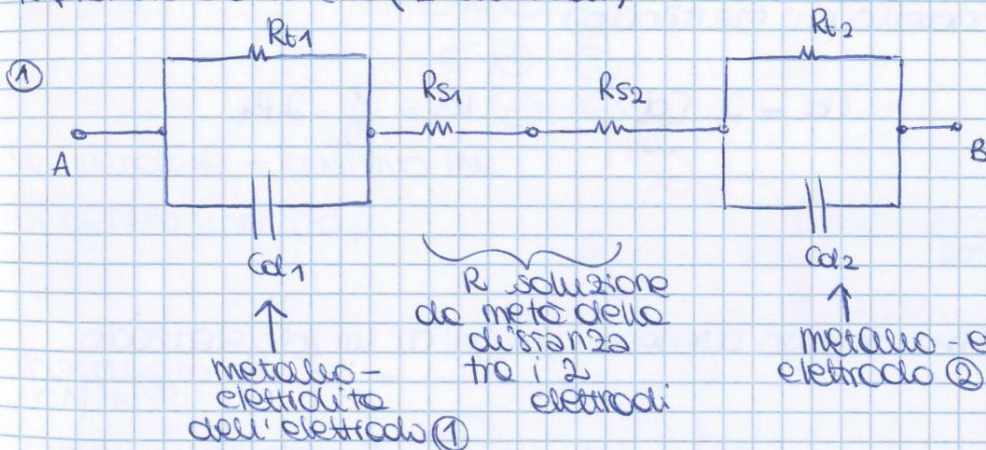 ①
Rt1
Rs1
Rs2
Rt2
A
B
Cd1
Cd2
R soluzione
da metà della
distanza
tra i 2
elettrodi
metallo-
elettrolita
dell'elettrodo ①
metallo - e
elettrodo ②